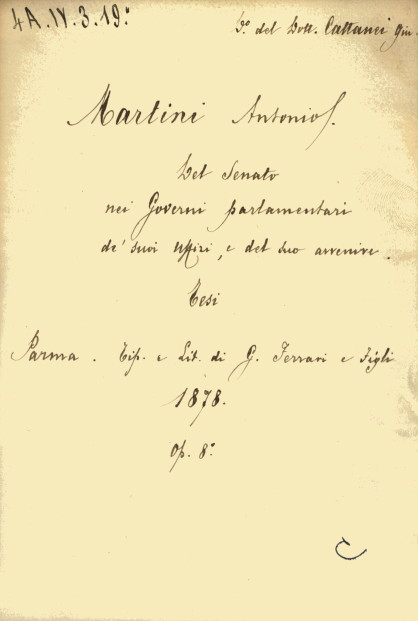 4A.IV.3.19°
D.° del Dott. Cattanei Giu.
Martini Antonio.
Del Senato
nei Governi parlamentari
de' suoi uffizi, e del suo avvenire.
Tesi
Parma. Tip. e Lit. di G. Ferrari e Figli
1878.
Op. 8.°
C